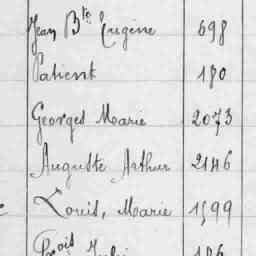 Jean Bte Eugène 698
Patient 180
Georges Marie 2073
Auguste Arthur 2146
Louis, Marie 1599